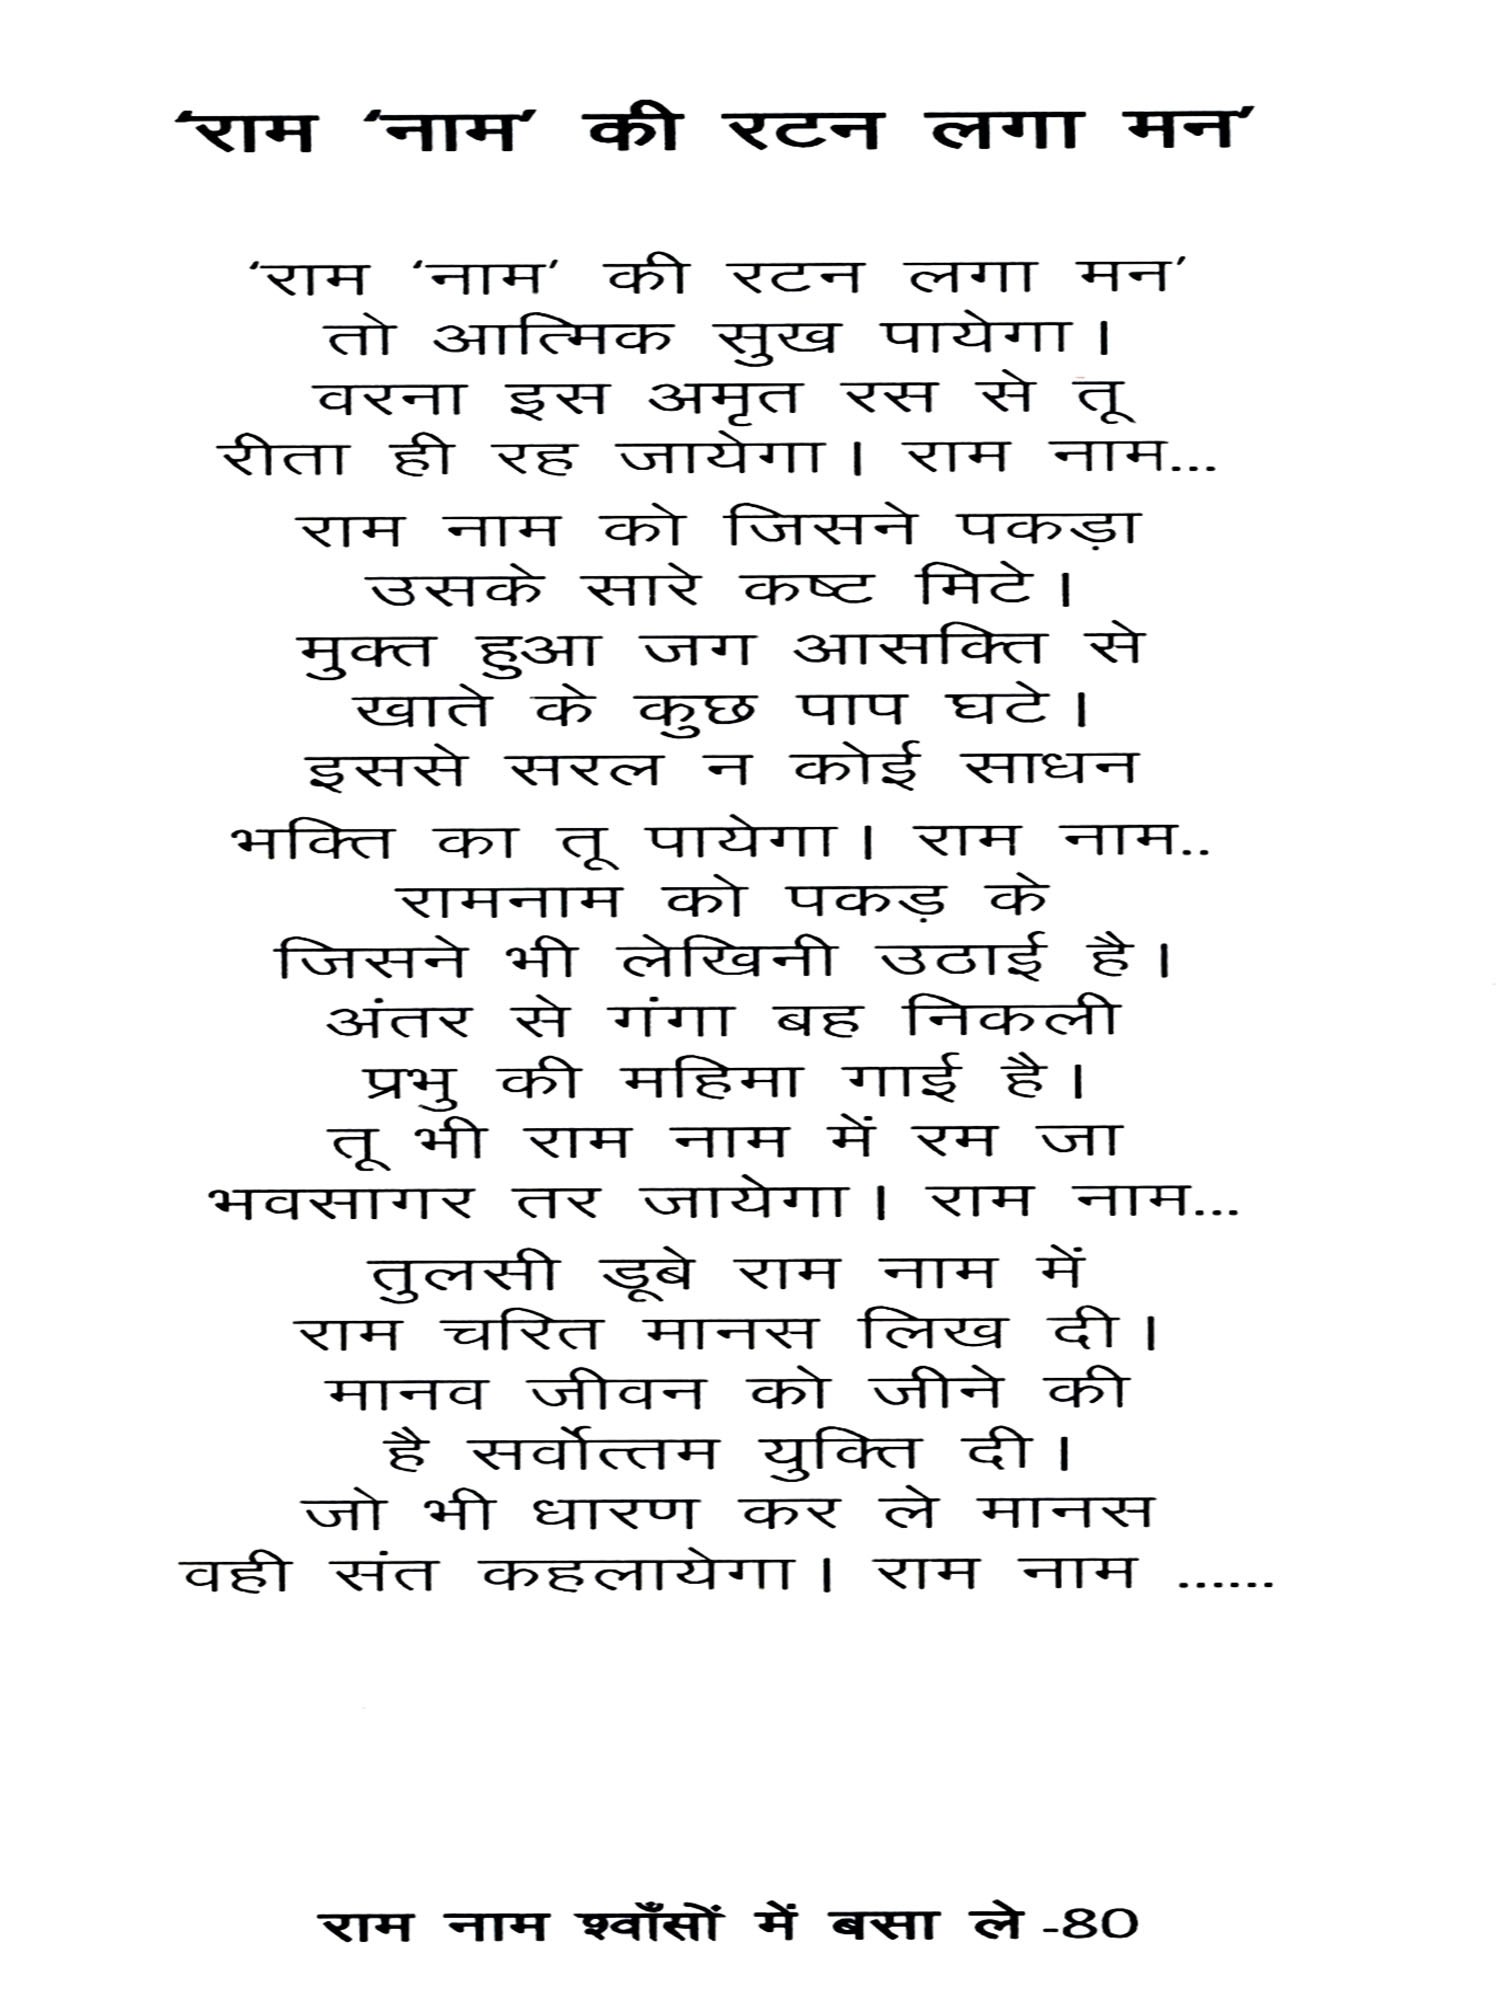 ‘राम ‘नाम’ की रटन लगा मन’
‘राम ‘नाम’ की रटन लगा मन’
तो आत्मिक सुख पायेगा।
वरना इस अमृत रस से तू
रीता ही रह जायेगा। राम नाम...
राम नाम को जिसने पकड़ा
उसके सारे कष्ट मिटे।
मुक्त हुआ जग आसक्ति से
खाते के कुछ पाप घटे।
इससे सरल न कोई साधन
भक्ति का तू पायेगा। राम नाम..
रामनाम को पकड़ के
जिसने भी लेखिनी उठाई है।
अंतर से गंगा बह निकली
प्रभु की महिमा गाई है।
तू भी राम नाम में रम जा
भवसागर तर जायेगा। राम नाम...
तुलसी डूबे राम नाम में
राम चरित मानस लिख दी।
मानव जीवन को जीने की
है सर्वोत्तम युक्ति दी।
जो भी धारण कर ले मानस
वही संत कहलायेगा। राम नाम ......
राम नाम श्वाँसों में बसा ले -80